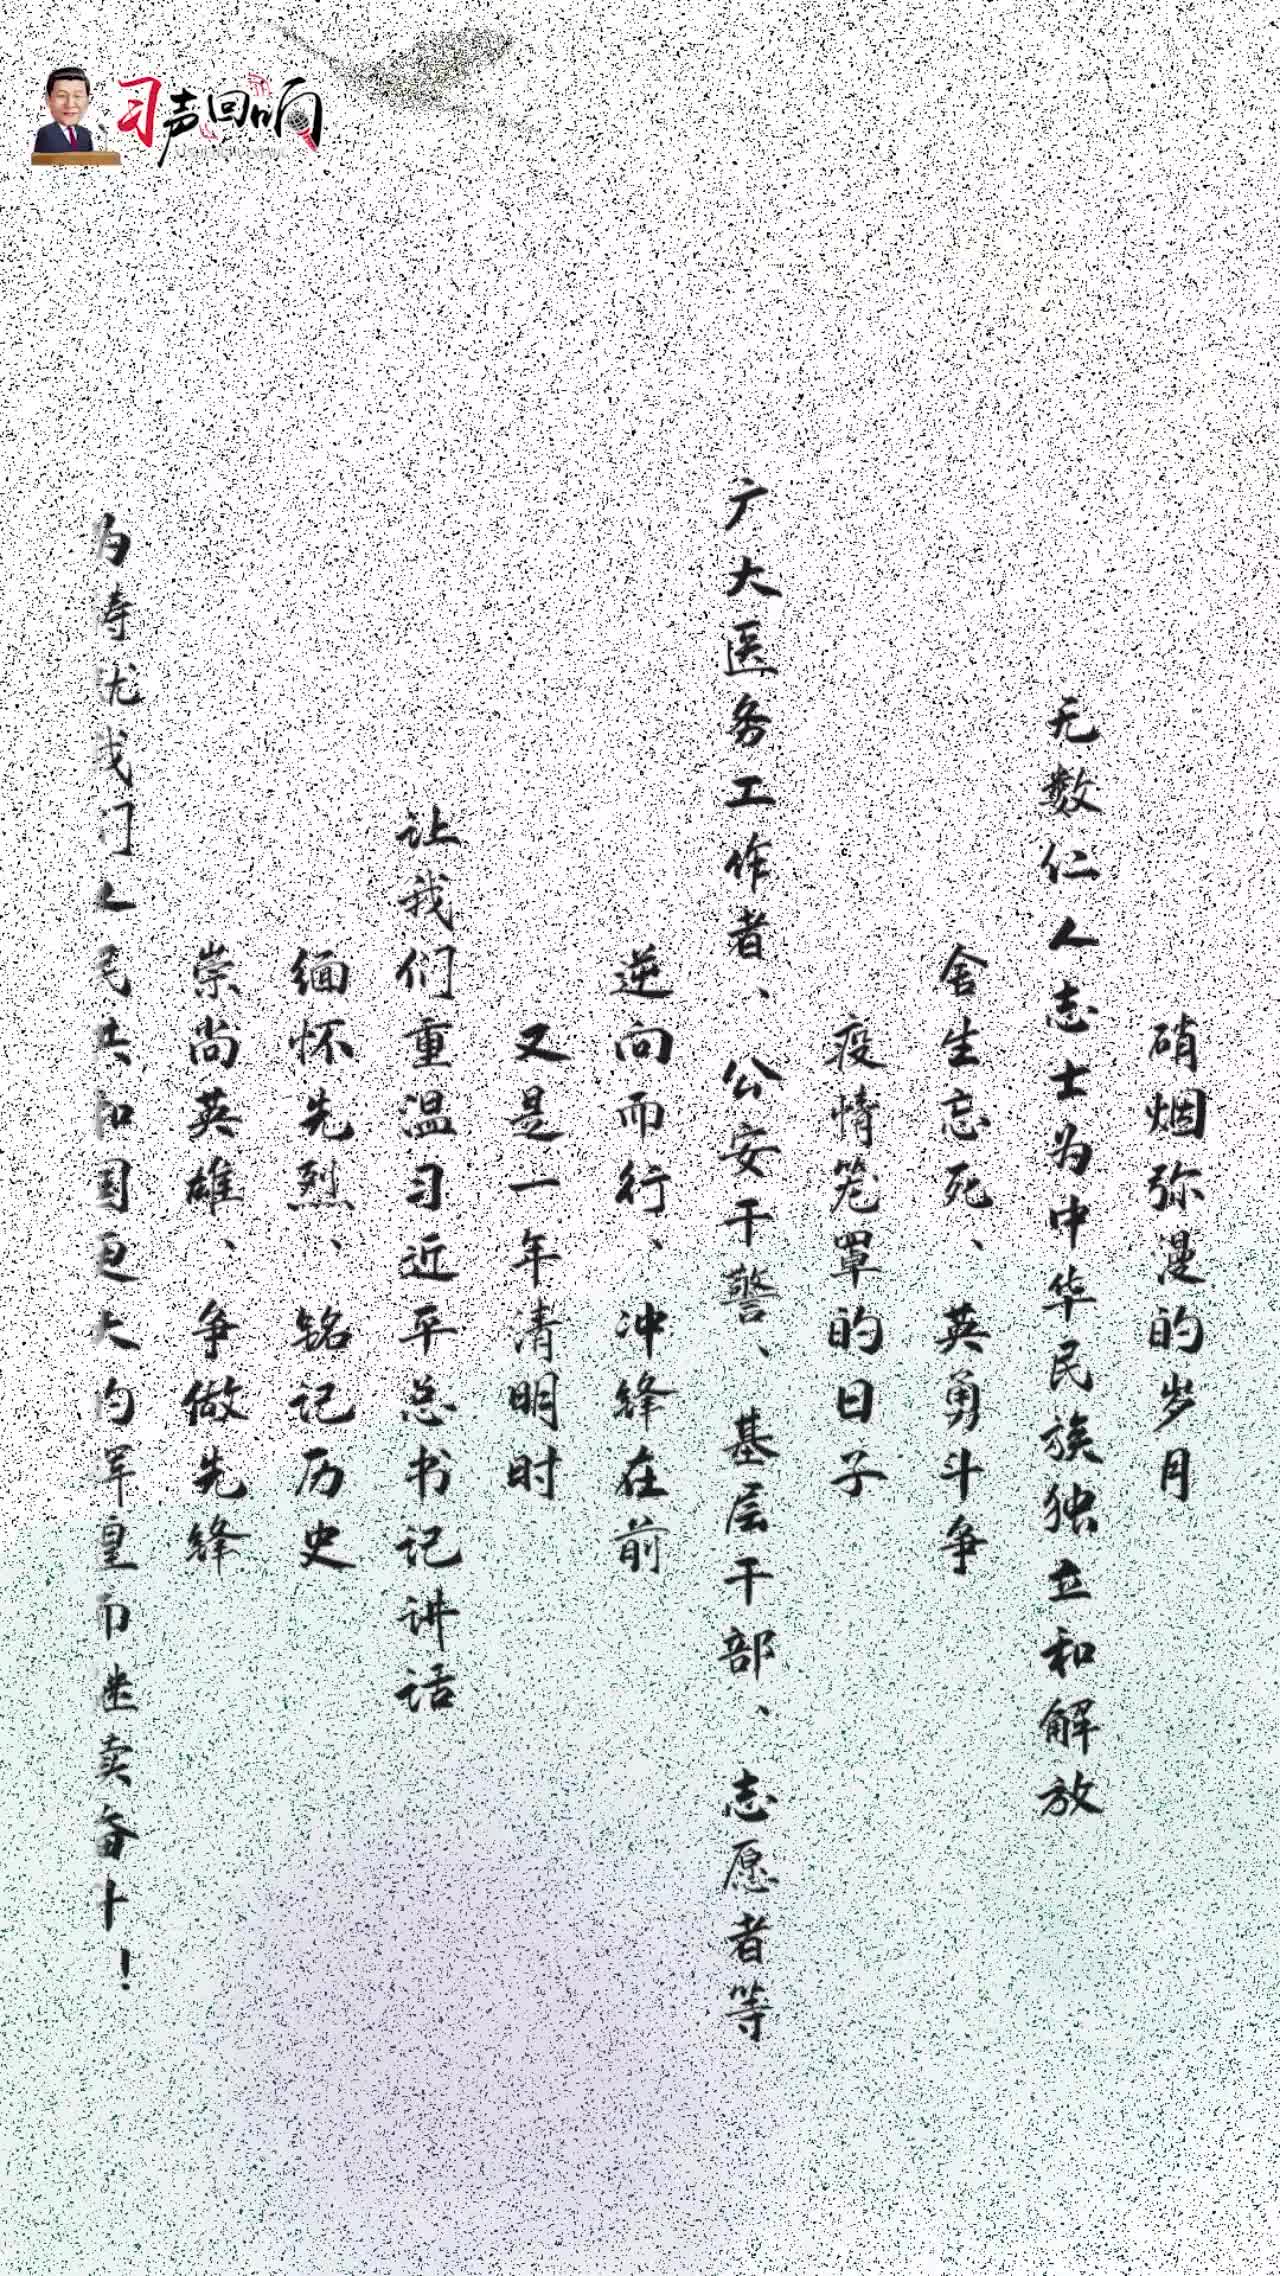 习声回响
硝烟弥漫的岁月
无数仁人志士为中华民族独立和解放
舍生忘死、英勇斗争
疫情笼罩的日子
广大医务工作者、公安干警、基层干部、志愿者等
逆向而行、冲锋在前
又是一年清明时
让我们重温习近平总书记讲话
缅怀先烈、铭记历史
崇尚英雄、争做先锋
为铸就我们人民共和国更大的辉煌而继续奋斗！